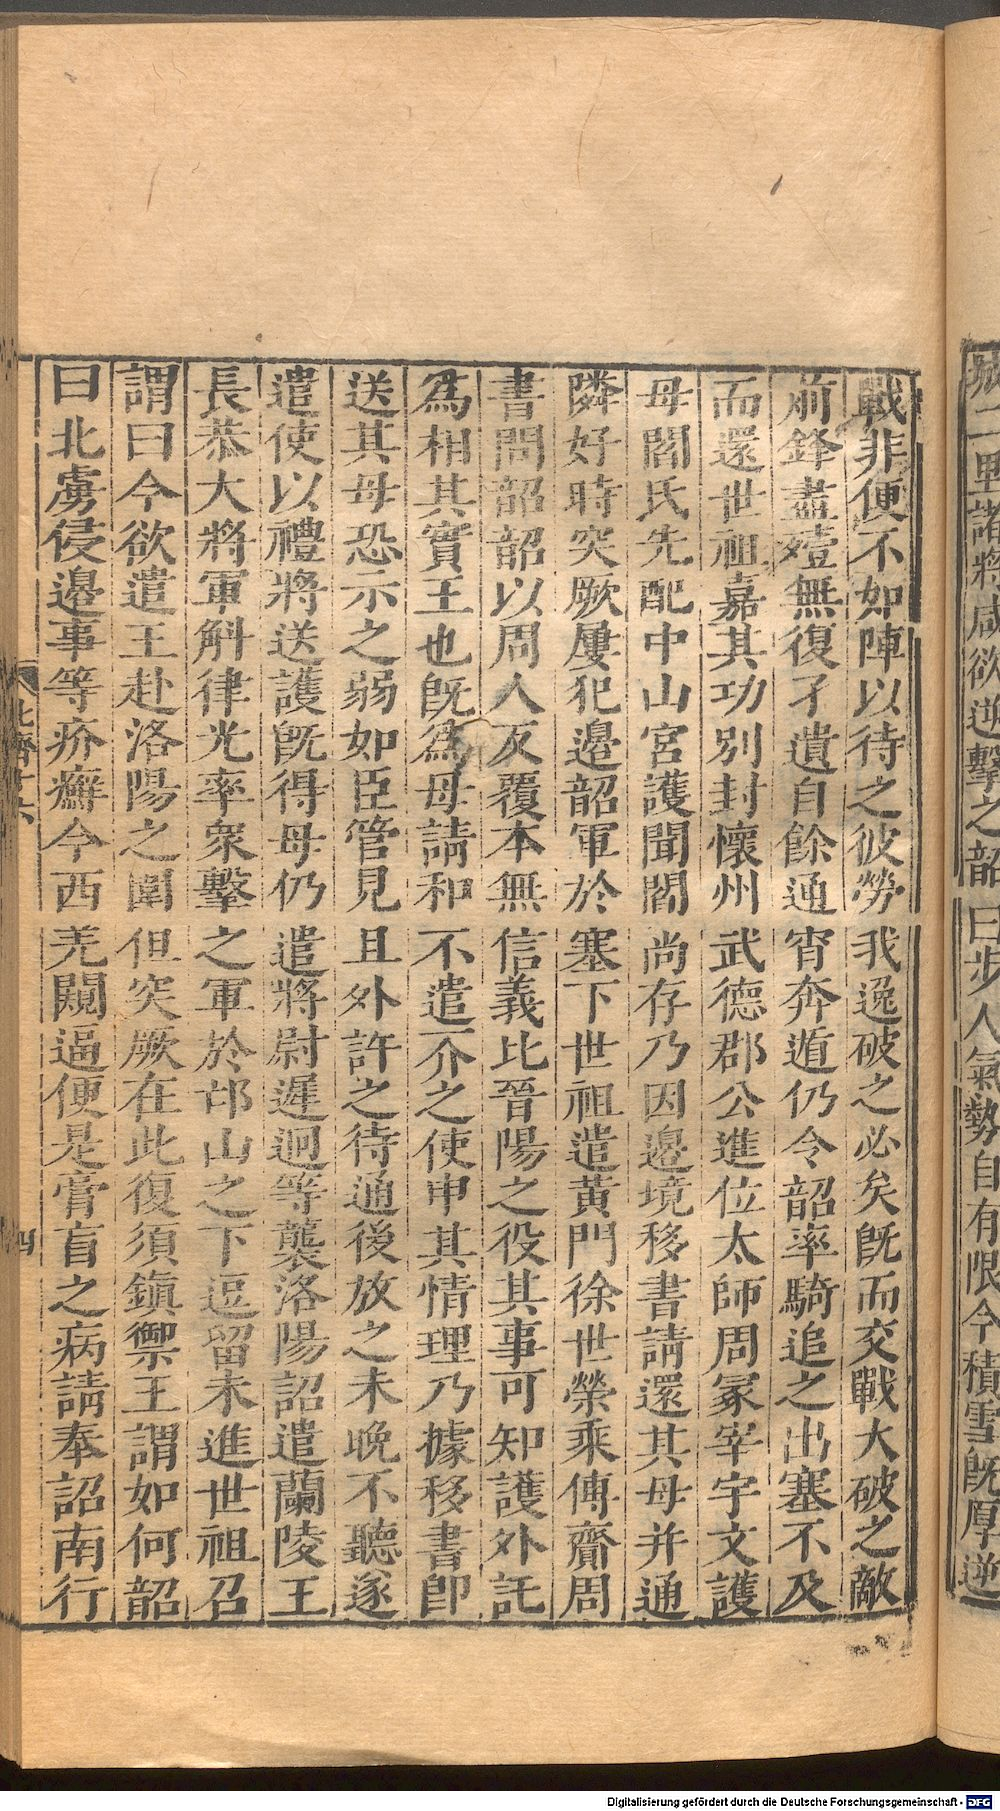 城二里諸將咸欲逆擊之韶曰步人氣勢自有限今積雪既厚逆
戰非便不如陣以待之彼勞我逸破之必矣既而交戰大破之敵
前鋒盡殪無復孑遺自餘通宵奔遁仍令韶率騎追之出塞不及
而還世祖嘉其功別封懷州武德郡公進位太師周冢宰宇文護
母閻氏先配中山宮護聞閻尚存乃因邊境移書請還其母并通
隣好時突厥屢犯邊韶軍於塞下世祖遣黃門徐世榮乘傳齎周
書問韶韶以周人反覆本無信義比晉陽之役其事可知護外託
為相其實王也既為母請和不遣一介之使申其情理乃據移書即
送其母恐示之弱如臣管見且外許之待通後放之未晚不聽遂
遣使以禮將送護既得母仍遣將尉遲迥等襲洛陽詔遣蘭陵王
長恭大將軍斛律光率衆擊之軍於邙山之下逗留未進世祖召
謂曰今欲遣王赴洛陽之圍但突厥在此復須鎮禦王謂如何韶
曰北虜侵邊事等疥癬今西羌闚逼便是膏肓之病請奉詔南行
北齊十六
四
Digitalisierung gefördert durch die Deutsche Forschungsgemeinschaft - DFG